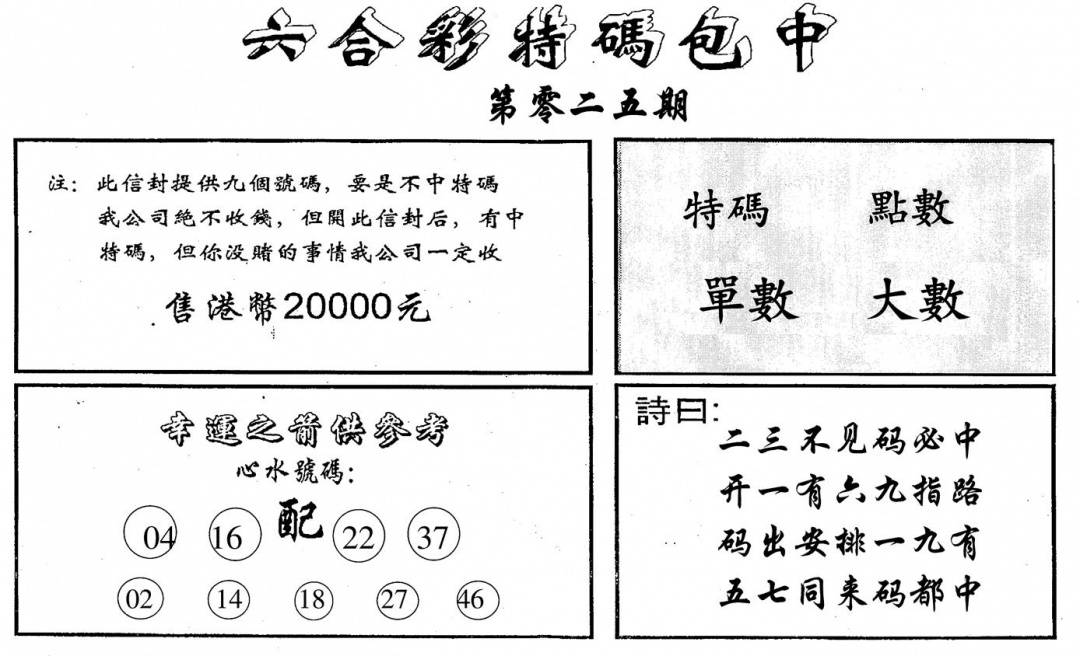 六合彩特碼包中
第零二五期
注：此信封提供九個號碼，要是不中特碼
我公司絕不收錢，但開此信封后，有中
特碼，但你没賭的事情我公司一定收
售港幣20000元
特碼 點數
單數 大數
幸運之箭供參考
心水號碼：
04 16 配 22 37
02 14 18 27 46
詩曰：
二三不见码必中
开一有六九指路
码出安排一九有
五七同来码都中